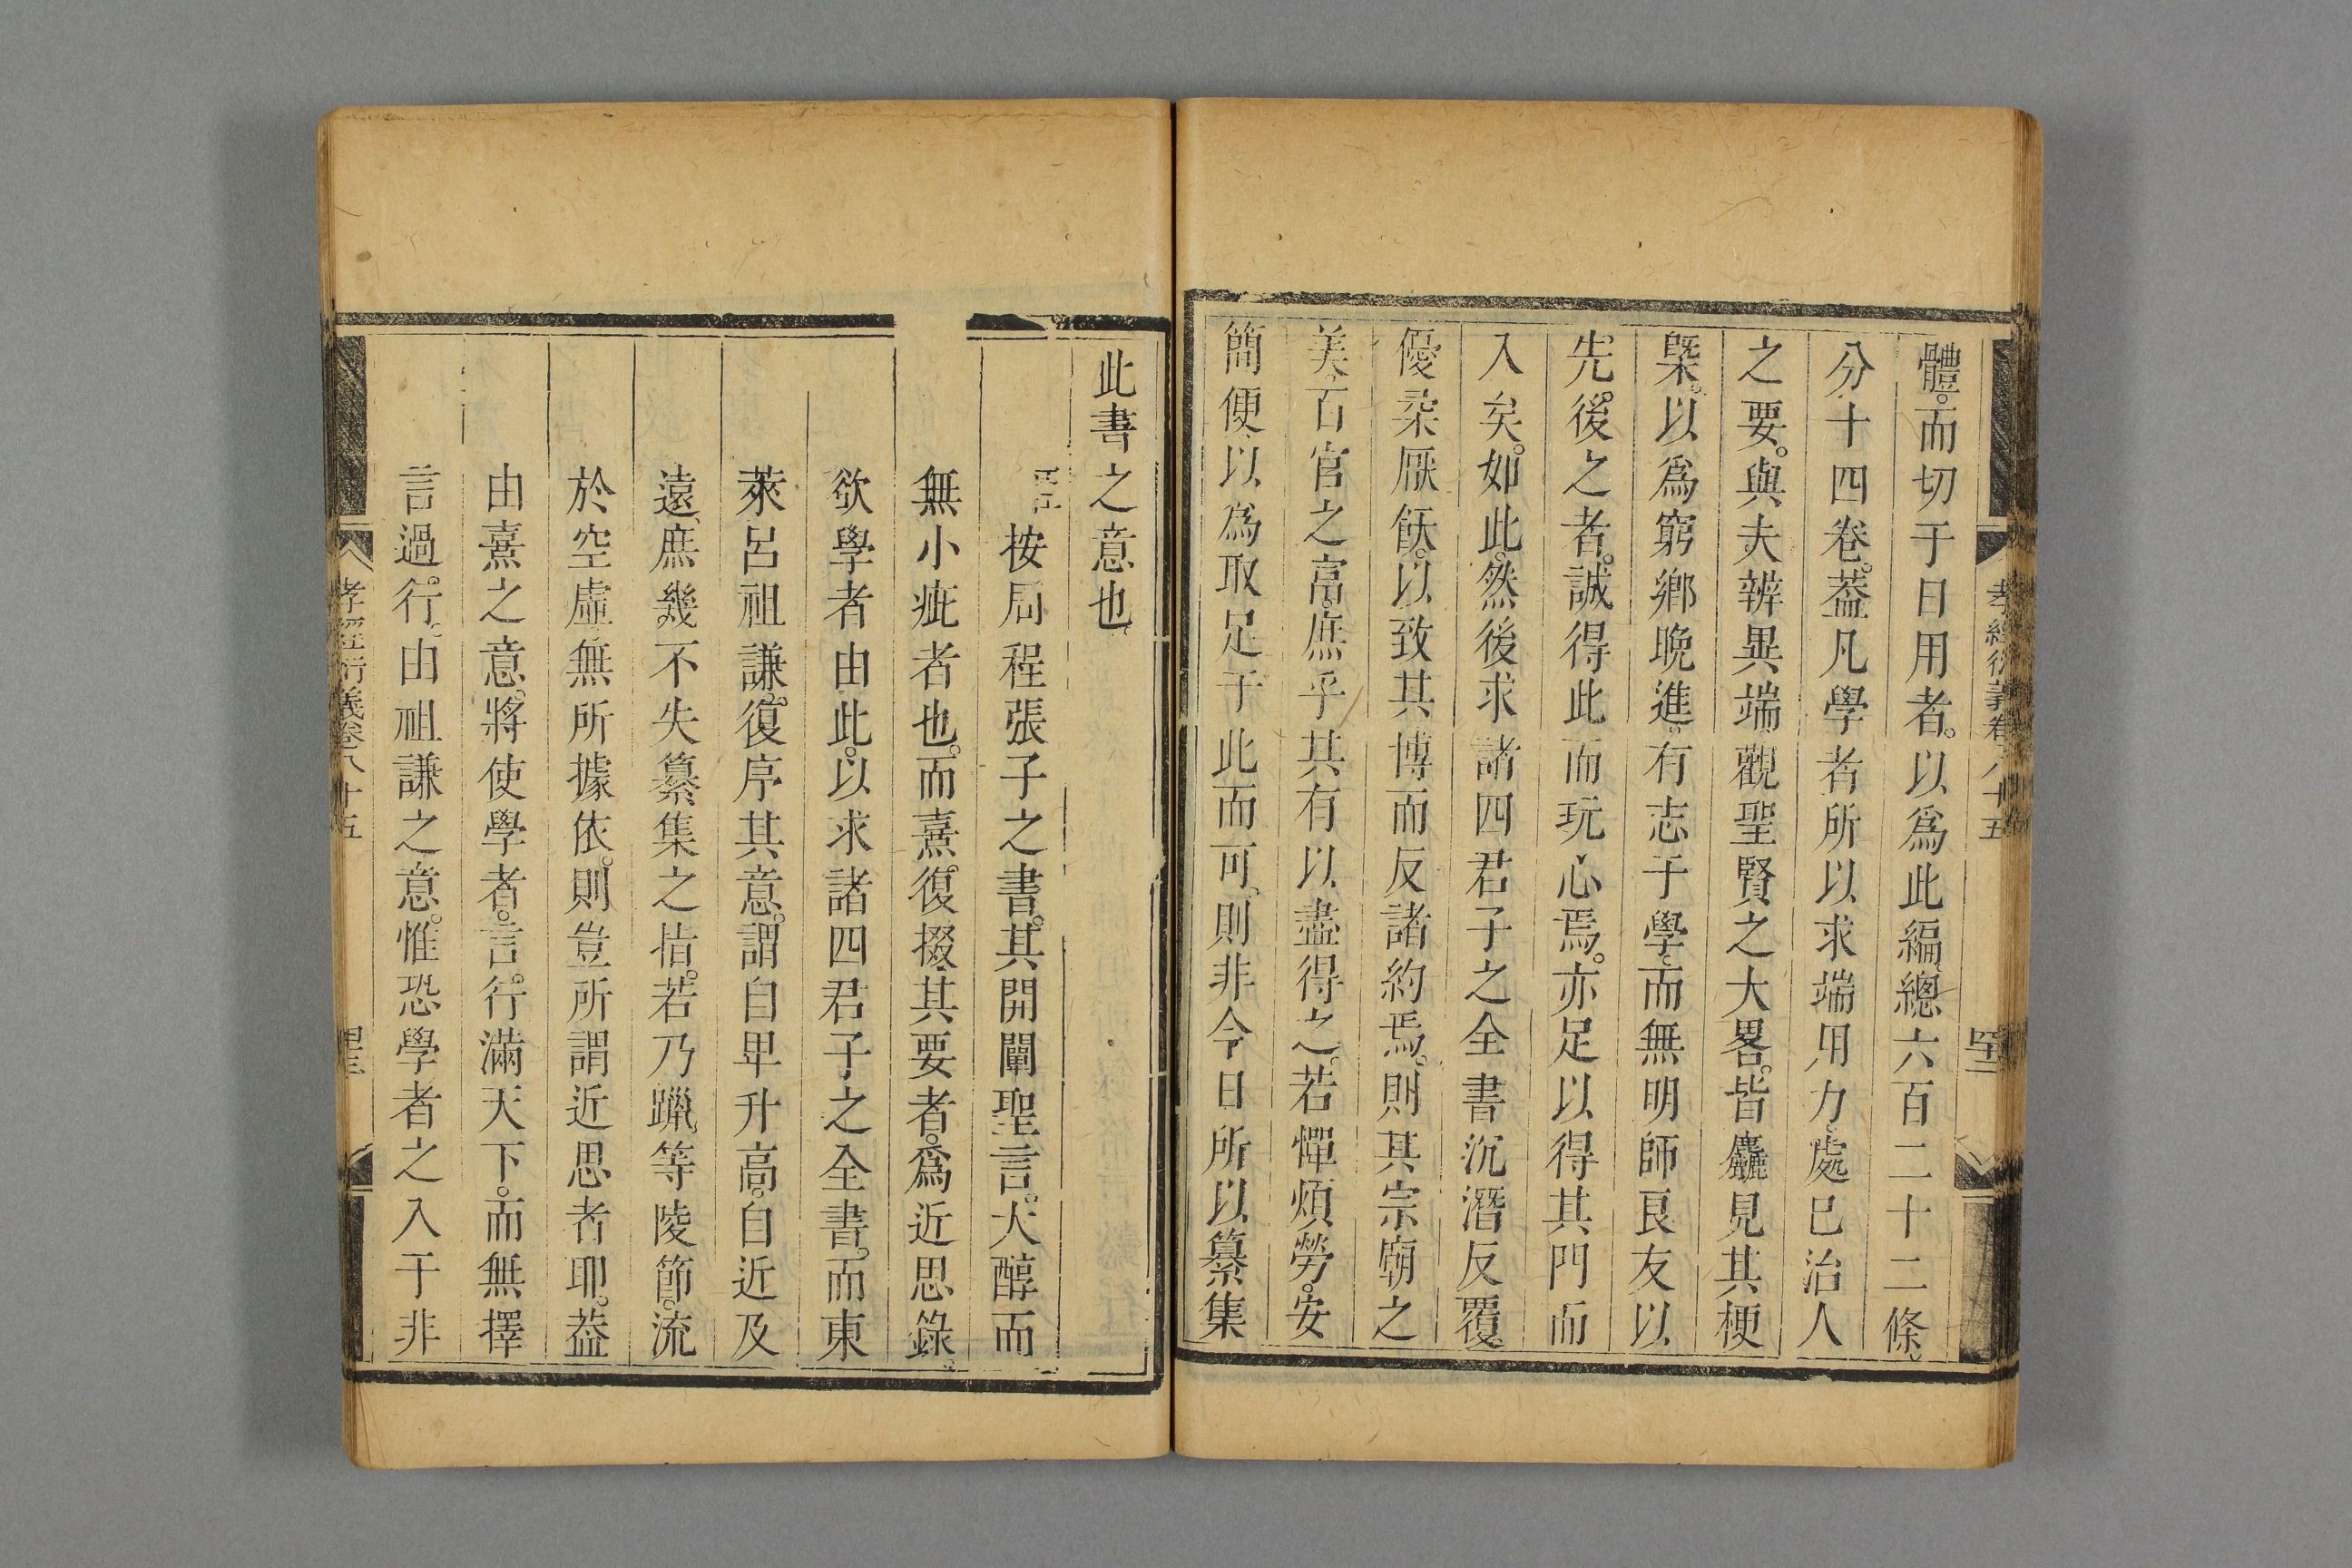 體而切于日用者以爲此編總六百二十二條
分十四卷葢凡學者所以求端用力處已治人
之要與夫辨異端觀聖賢之大畧皆麤見其梗
槩以爲窮鄉晚進有志于學而無明師良友以
先後之者誠得此而玩心焉亦足以得其門而
入矣如此然後求諸四君子之全書沉潛反覆
優柔厭飫以致其博而反諸約焉則其宗廟之
美百官之富庶乎其有以盡得之若憚煩勞安
簡便以爲取足于此而可則非今日所以纂集
此書之意也
臣按周程張子之書其開闡聖言大醇而
無小疵者也而熹復掇其要者爲近思錄
欲學者由此以求諸四君子之全書而東
萊呂祖謙復序其意謂自卑升高自近及
遠庶幾不失纂集之指若乃躐等陵節流
於空虛無所據依則豈所謂近思者耶葢
由熹之意將使學者言行滿天下而無擇
言過行由祖謙之意惟恐學者之入于非
孝經衍義卷八十五
孝經衍義卷八十五